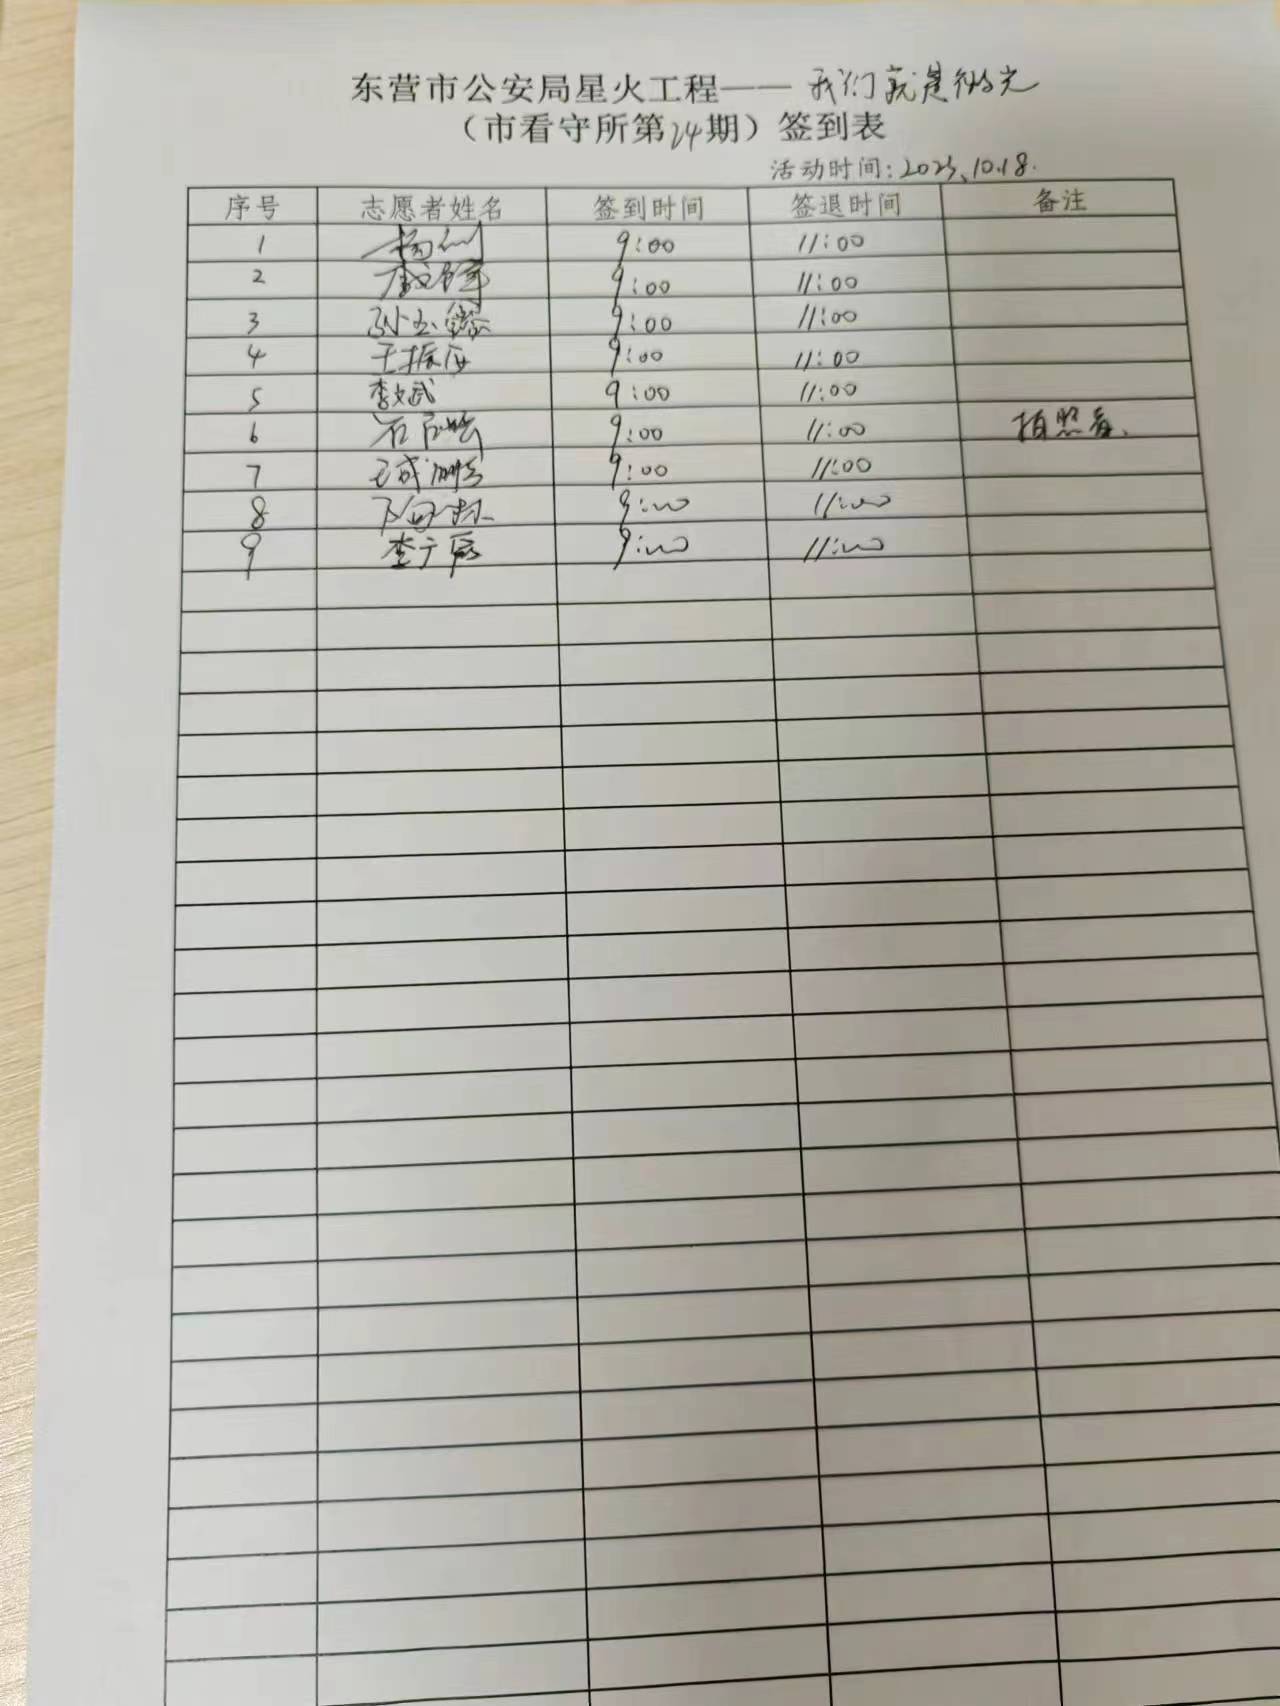 东营市公安局星火工程——我们就是微光
（市看守所第24期）签到表
活动时间:2023.10.18.
序号 志愿者姓名 签到时间 签退时间 备注
1 9:00 11:00
2 9:00 11:00
3 9:00 11:00
4 9:00 11:00
5 李文武 9:00 11:00
6 9:00 11:00 拍照看、
7 9:00 11:00
8 9:00 11:00
9 9:00 11:00